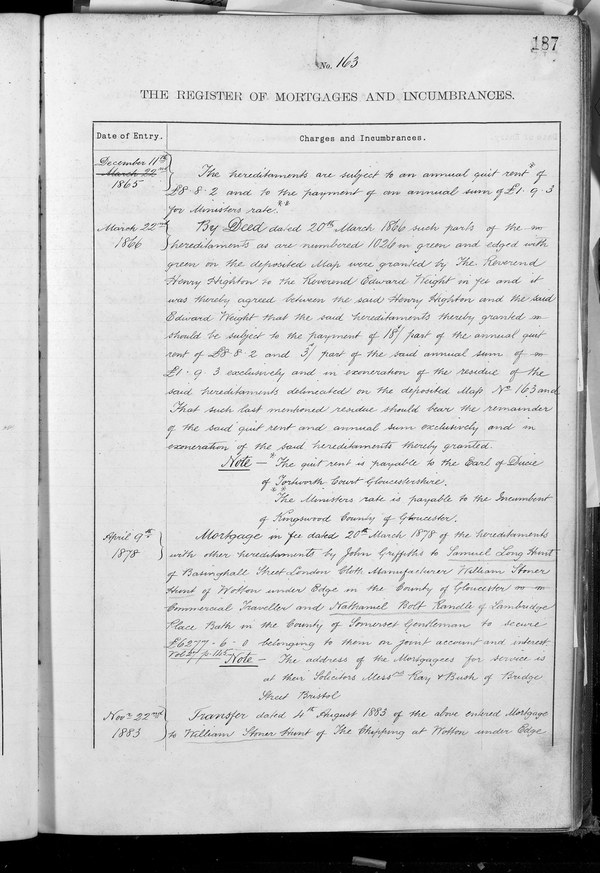 187
No. 163
THE REGISTER OF MORTGAGES AND INCUMBRANCES.
Date of Entry.
Charges and Incumbrances.
December 11th
March 22nd
1865
The hereditaments are subject to an annual quit rent* of
£8-8-2 and to the payment of an annual sum of £1-9-3
for Ministers rate.**
March 22nd
1866
By Deed dated 20th March 1866 such parts of the
hereditaments as are numbered 1026 in green and edged with
green on the deposited Map were granted by The Reverend
Henry Highton to the Reverend Edward Weight in fee and it
was thereby agreed between the said Henry Highton and the said
Edward Weight that the said hereditaments thereby granted
should be subject to the payment of 18s/ part of the annual quit
rent of £8-8-2 and 3s/ part of the said annual sum of
£1-9-3 exclusively and in exoneration of the residue of the
said hereditaments delineated on the deposited Map No 163 and
That such last mentioned residue should bear the remainder
of the said quit rent and annual sum exclusively and in
exoneration of the said hereditaments thereby granted.
Note - * The quit rent is payable to the Earl of Ducie
of Tortworth Court Gloucestershire.
** The Ministers rate is payable to the Incumbent
of Kingswood County of Gloucester.
April 9th
1878
Mortgage in fee dated 20th March 1878 of the hereditaments
with other hereditaments by John Griffiths to Samuel Long Hunt
of Basinghall Street London Cloth Manufacturer William Stoner
Hunt of Wotton under Edge in the County of Gloucester
Commercial Traveller and Nathaniel Bolt Randle of Lambridge
Place Bath in the County of Somerset Gentleman to secure
£6277-6-0 belonging to them on joint account and interest.
Vol 24 p. 145
Note - The address of the Mortgagees for service is
at their Solicitors Messrs Kay & Bush of Bridge
Street Bristol
Novr 22nd
1883
Transfer dated 4th August 1883 of the above entered Mortgage
to William Stoner Hunt of The Chipping at Wotton under Edge